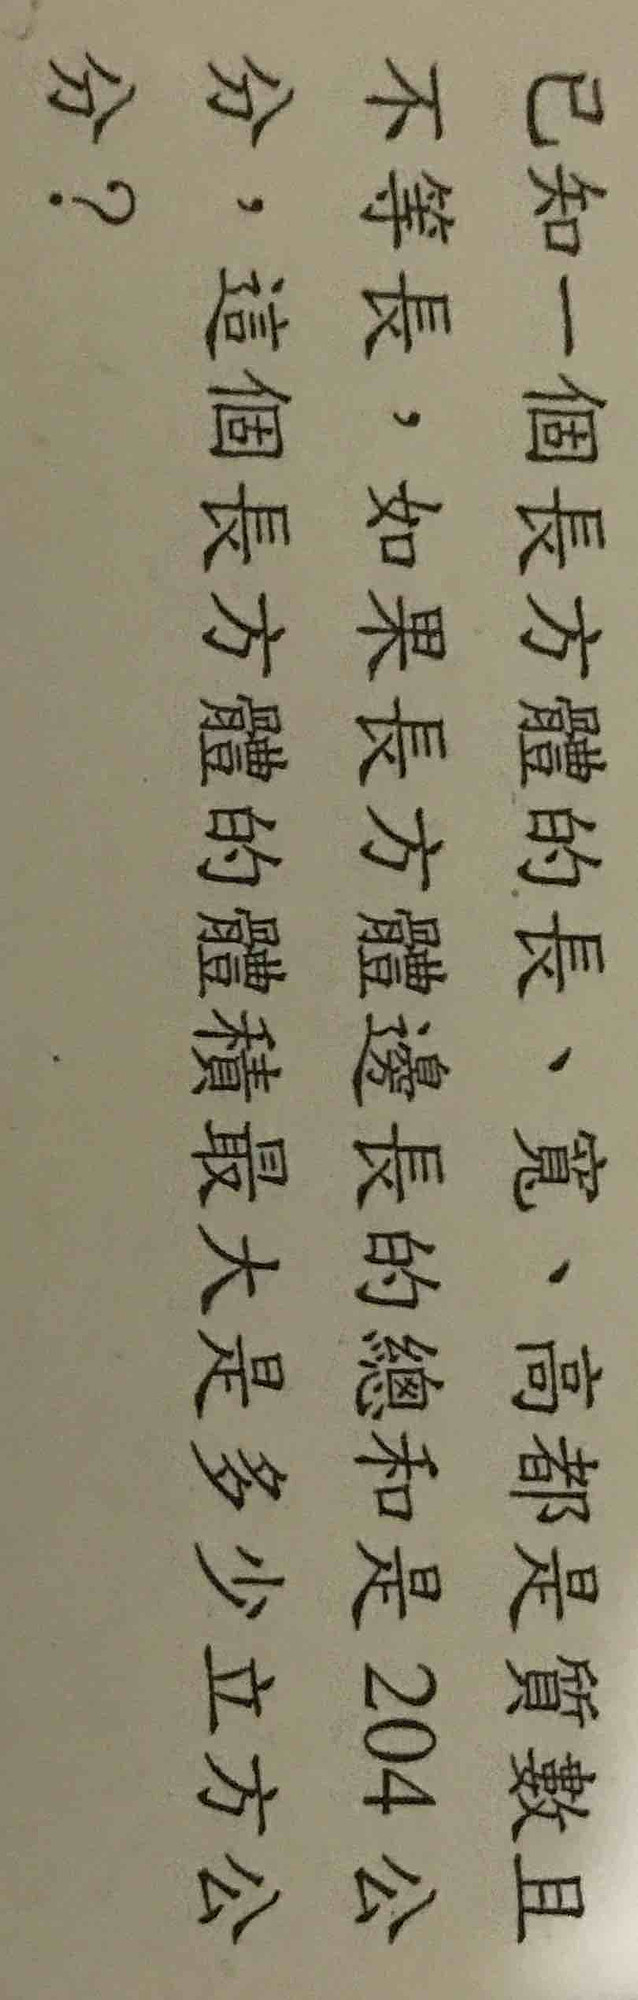 已知一個長方體的長、寬、高都是質數且
不等長，如果長方體邊長的總和是204公
分，這個長方體的體積最大是多少立方公
分？